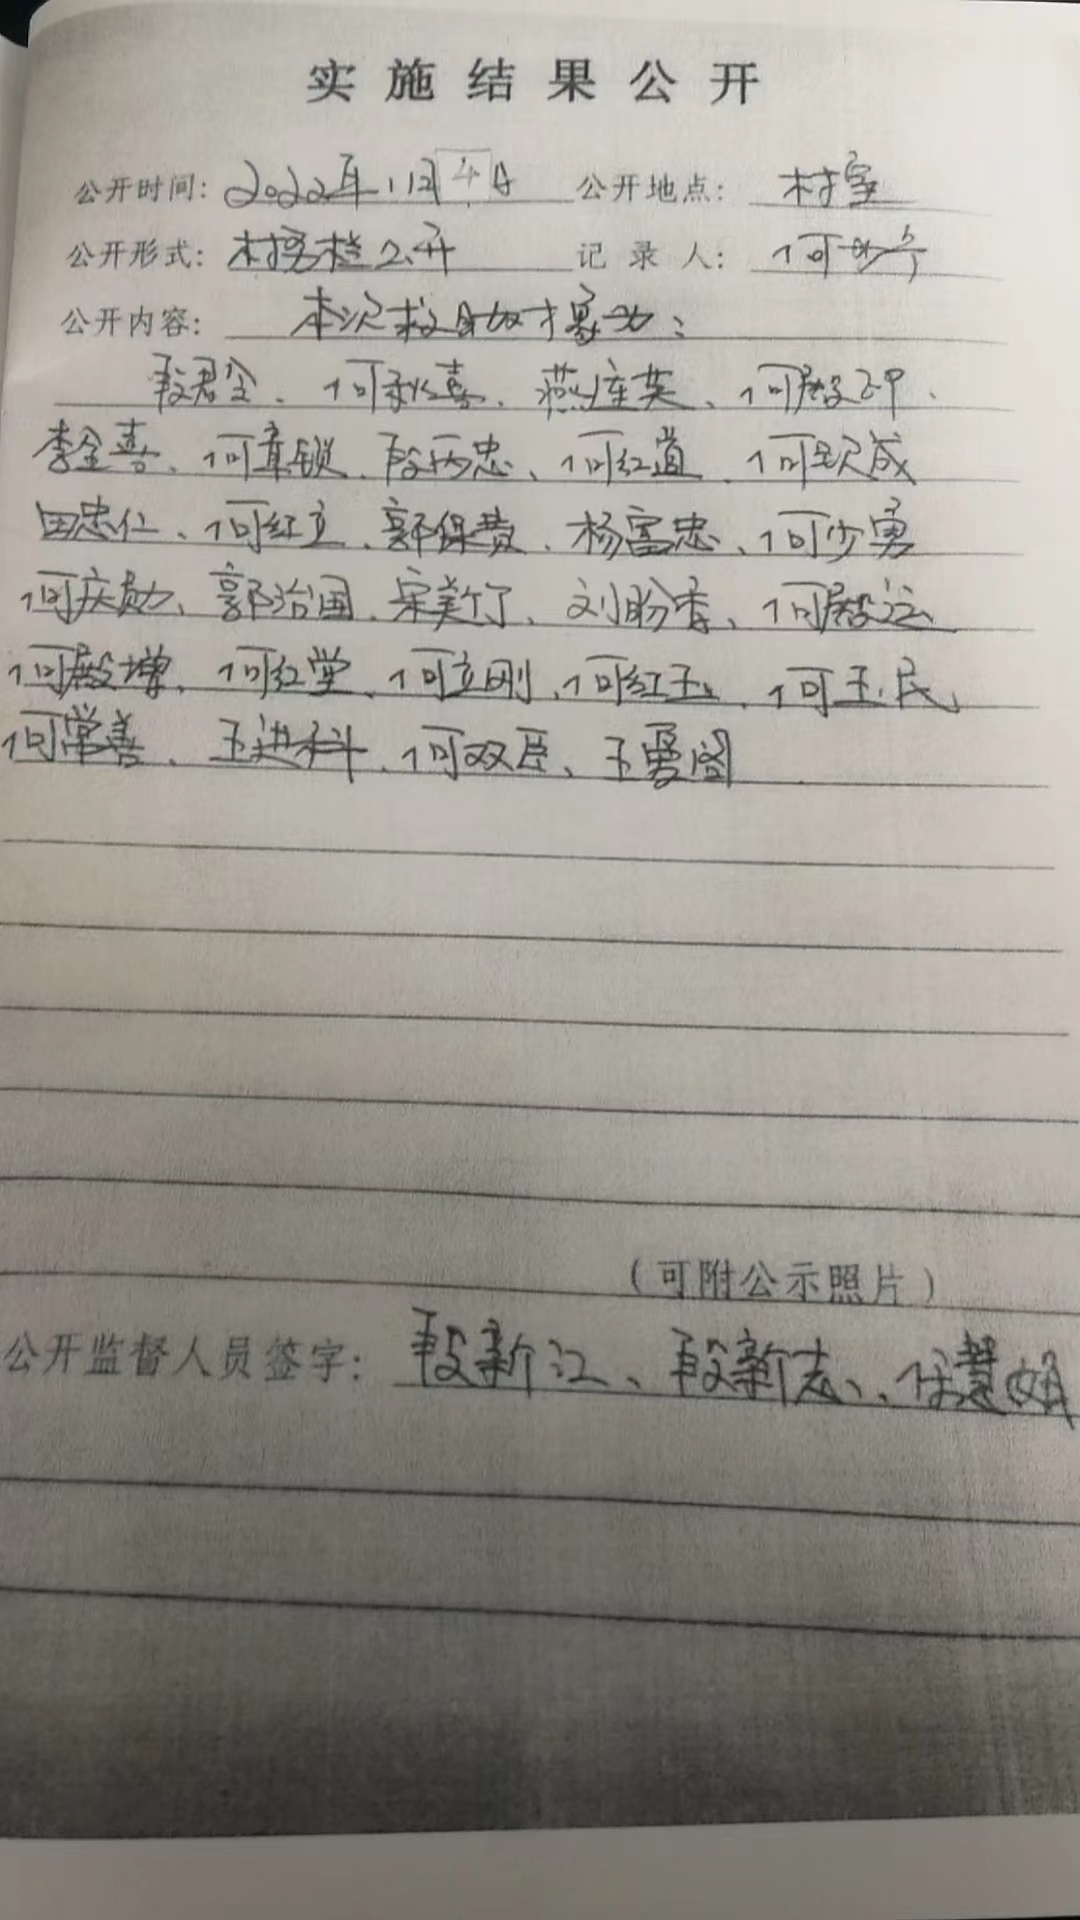 实施结果公开
公开时间: 2022年1月4日 公开地点: 村室
公开形式: 村务栏公开 记录人: 何
公开内容: 本次救助对象为:
段君全、何秋喜、燕连英、何殿卿、
李金喜、何章锁、段丙忠、何红道、何跃成
田忠仁、何红立、郭保费、杨富忠、何少勇
何庆勋、郭治国、宋美竹、刘盼香、何殿运
何殿增、何红堂、何立刚、何红玉、何玉民、
何常善、王进科、何双臣、王勇阁
(可附公示照片)
公开监督人员签字: 段新江、段新志、任慧娟